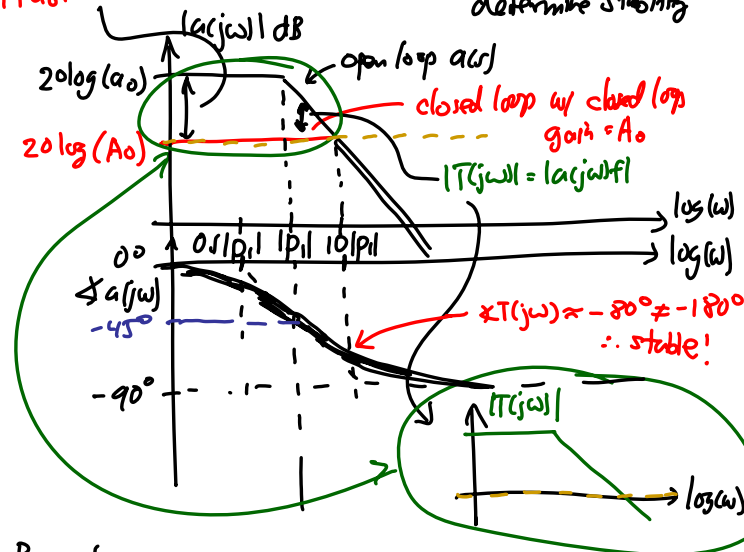 determine stability
|a(jω)| dB
20log(a₀)
open loop a(s)
closed loop w/ closed loop
gain = A₀
20log(A₀)
|T(jω)| = |a(jω)f|
log(ω)
0° 0.1|p₁| |p₁| 10|p₁|
log(ω)
∡a(jω)
-45°
∡T(jω) ≈ -80° ≠ -180°
∴ stable!
-90°
|T(jω)|
log(ω)